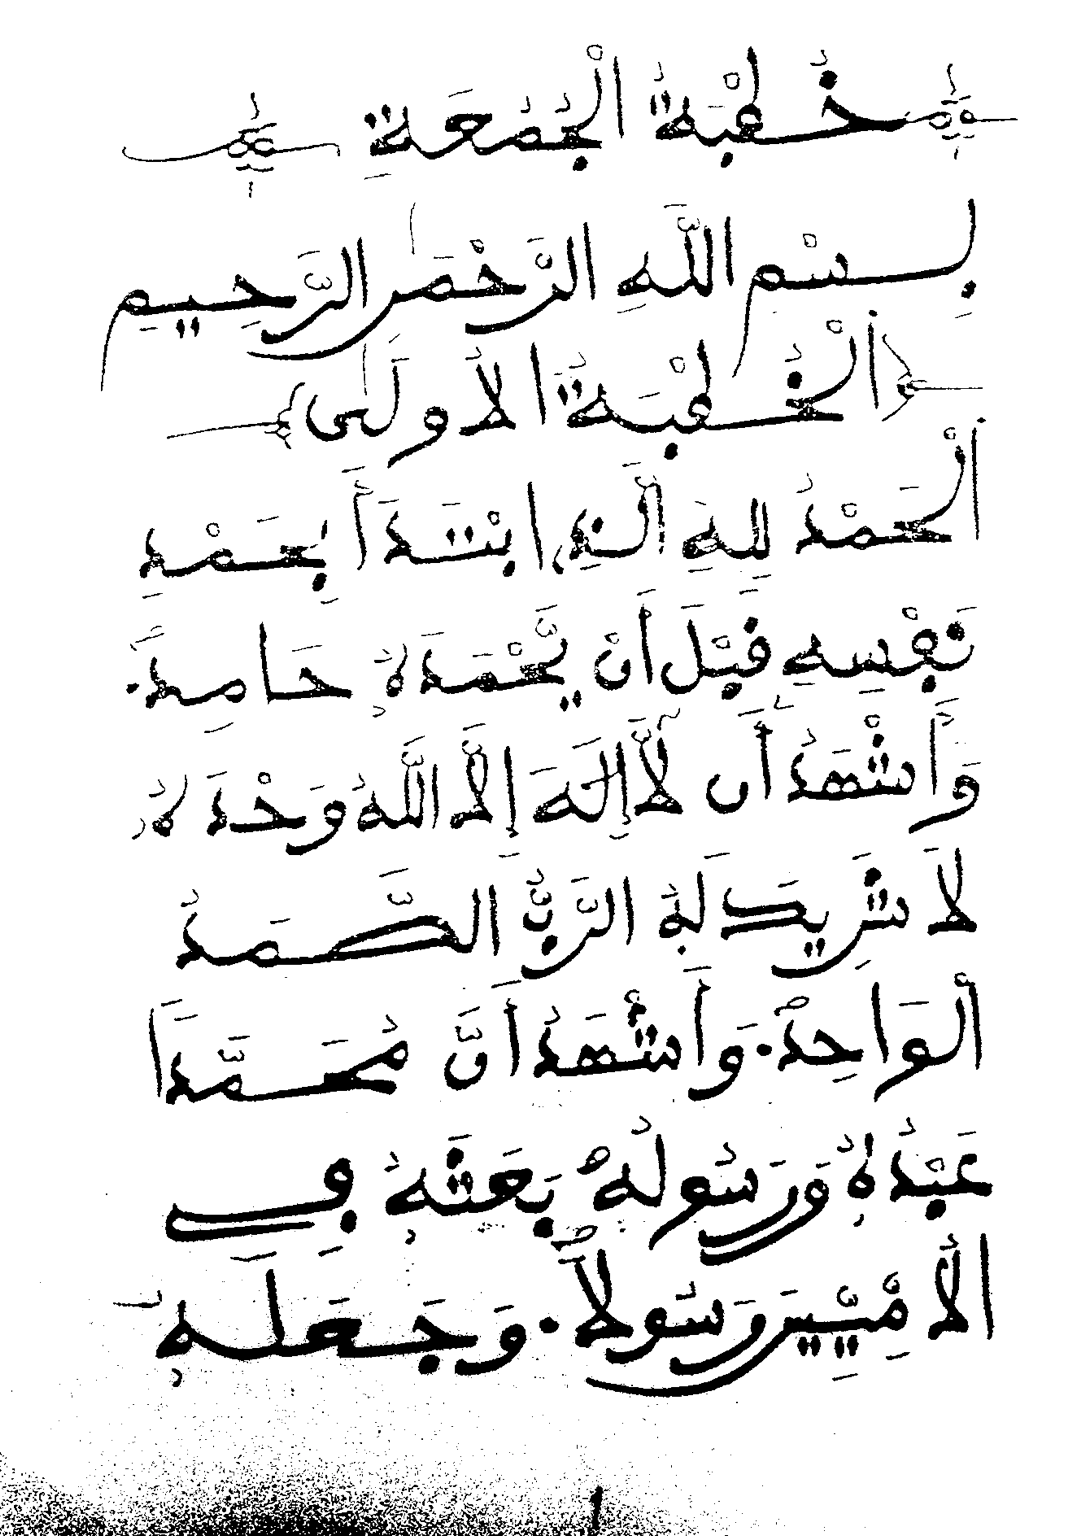 خُطْبَةُ الْجُمُعَةِ
بِسْمِ اللَّهِ الرَّحْمٰنِ الرَّحِيمِ
الْخُطْبَةُ الْأُولَى
اَلْحَمْدُ لِلهِ الَّذِى ابْتَدَأَ بِحَمْدِ
نَفْسِهِ قَبْلَ أَنْ يَّحْمَدَهُ حَامِدٌ.
وَأَشْهَدُ أَن لَّا إِلَهَ إِلَّا اللَّهُ وَحْدَهُ
لَا شَرِيكَ لَهُ الرَّبُّ الصَّمَدُ
اَلْوَاحِدُ. وَأَشْهَدُ أَنَّ مُحَمَّدًا
عَبْدُهُ وَرَسُولُهُ بَعَثَهُ فِي
الْأُمِّيِّينَ رَسُولًا. وَجَعَلَهُ